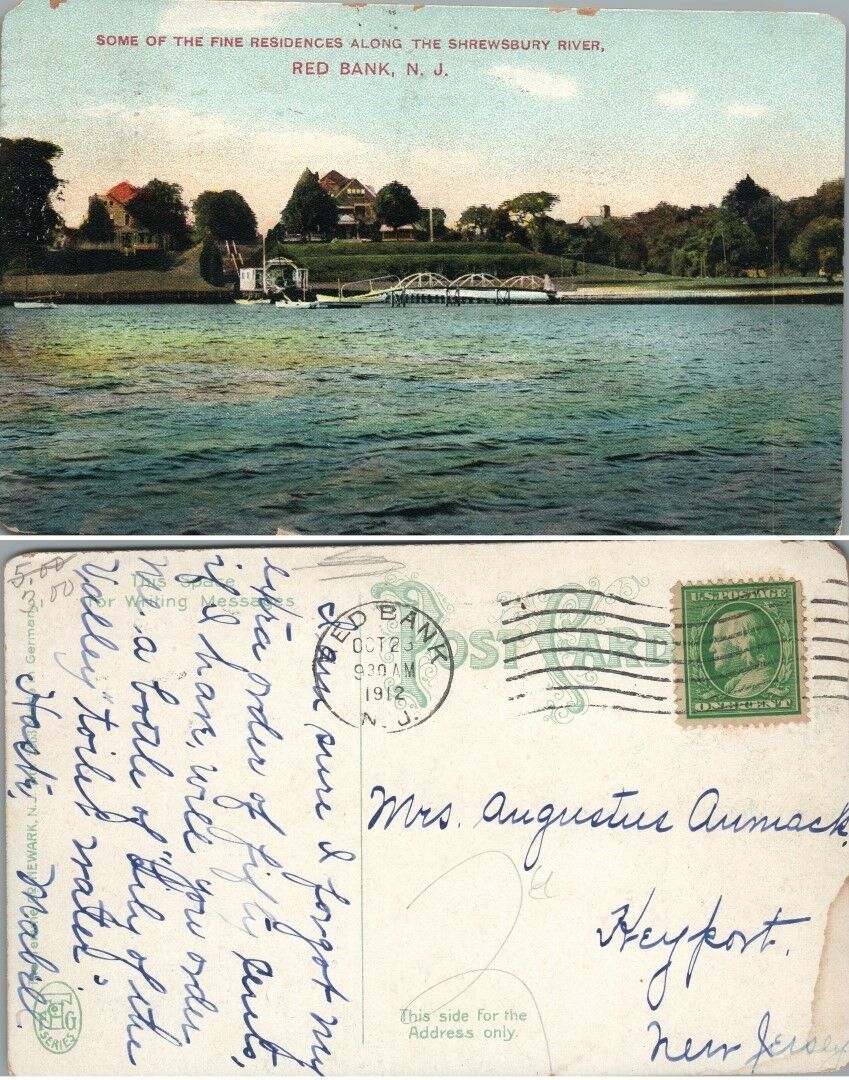 SOME OF THE FINE RESIDENCES ALONG THE SHREWSBURY RIVER,
RED BANK, N. J.
5.00
3.00
This Space
for Writing Messages
POST CARD
RED BANK
OCT 23
930 AM
1912
N. J.
U.S. POSTAGE
ONE CENT
I am sure I forgot my
extra order of fifty cents,
if I have, will you order
me a bottle of "Lily of the
Valley" toilet water.
Mabel.
Mrs. Augustus Aumack,
Keyport.
New Jersey
This side for the
Address only.
NEWARK, N.J.
Germany
SERIES